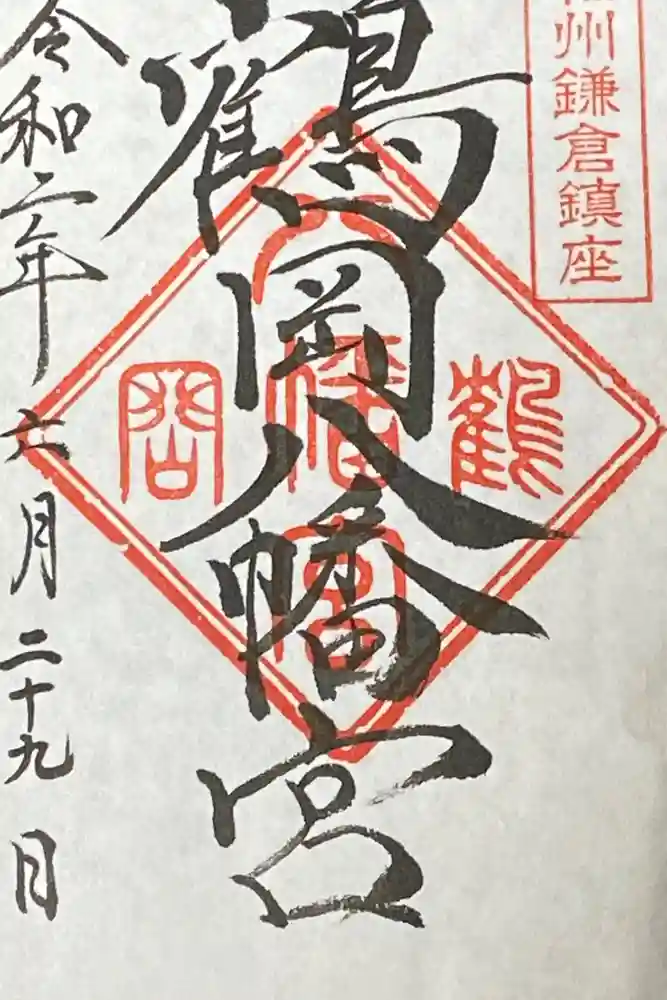 相州鎌倉鎮座
鶴岡八幡宮
鶴
八幡宮
岡
令和二年六月二十九日